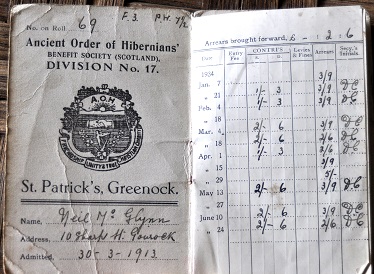 No. on Roll 69 F.3. PW.7/2
Ancient Order of Hibernians'
BENEFIT SOCIETY (SCOTLAND),
DIVISION No. 17.
A.O.H.
FRIENDSHIP UNITY & TRUE CHRISTIAN CHARITY
St. Patrick's, Greenock.
Name, Neil Mc Glynn
Address, 10 Sharp St. Gourock
Admitted, 30-3-1913.
Arrears brought forward, £ - : 2 : 6
Date Entry Fee CONTR'S s. d. Levies & Fines Arrears Secy.'s Initials.
1934
Jan. 7 3/9
" 21 1/- 3 3/9
Feb. 4 1/- 3 3/9
" 18
Mar. 4 2/- 6 3/9
" 18 2/- 6 2/6
Apr. 1 1/- 3 3/6
" 15 3/9
" 29 5/-
May 13 2/- 6 3/9
" 27
June 10 2/- 6 3/9
" 24 2/- 6 2/6